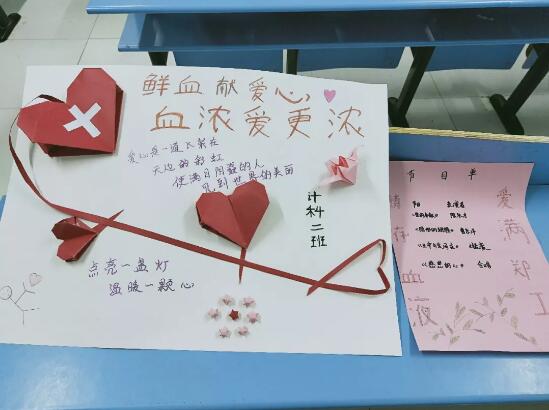 鲜血献爱心
血浓爱更浓
爱心是一道飞架在
天边的彩虹
使满目阴霾的人
见到世界的美丽
计科二班
点亮一盏灯
温暖一颗心
节目单
情存血液
爱满郑工
《感恩的心》 合唱